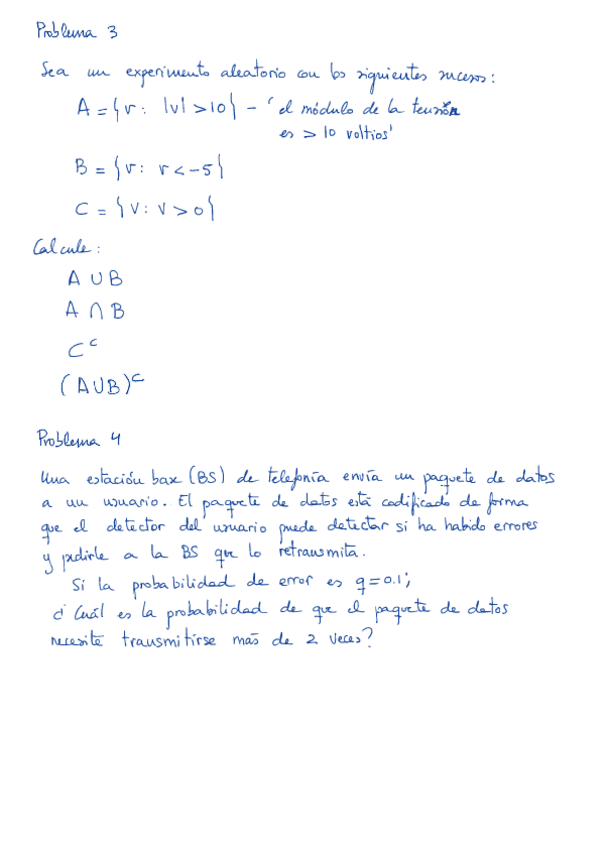 Problema 3
Sea un experimento aleatorio con los siguientes sucesos:
A = {v: |v| > 10} - 'el módulo de la tensión
es > 10 voltios'
B = {v: v < -5}
C = {v: v > 0}
Calcule:
A ∪ B
A ∩ B
C^c
(A∪B)^c
Problema 4
Una estación base (BS) de telefonía envía un paquete de datos
a un usuario. El paquete de datos está codificado de forma
que el detector del usuario puede detectar si ha habido errores
y pedirle a la BS que lo retransmita.
Si la probabilidad de error es q=0.1;
¿Cuál es la probabilidad de que el paquete de datos
necesite transmitirse más de 2 veces?